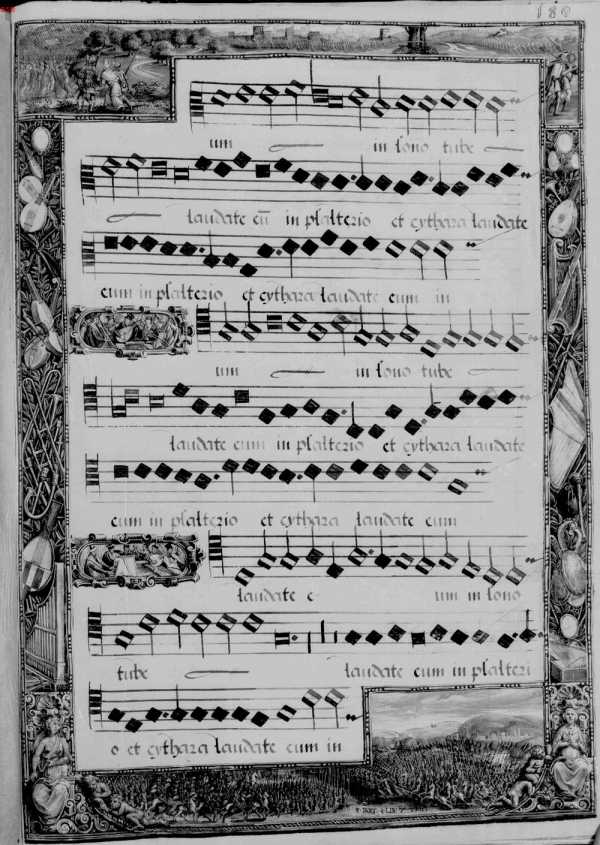 180
um in sono tube
laudate cū in psalterio et cythara laudate
cum in psalterio et cythara laudate cum in
um in sono tube
laudate cum in psalterio et cythara laudate
cum in psalterio et cythara laudate cum
laudate c um in sono
tube laudate cum in psalteri
o et cythara laudate cum in